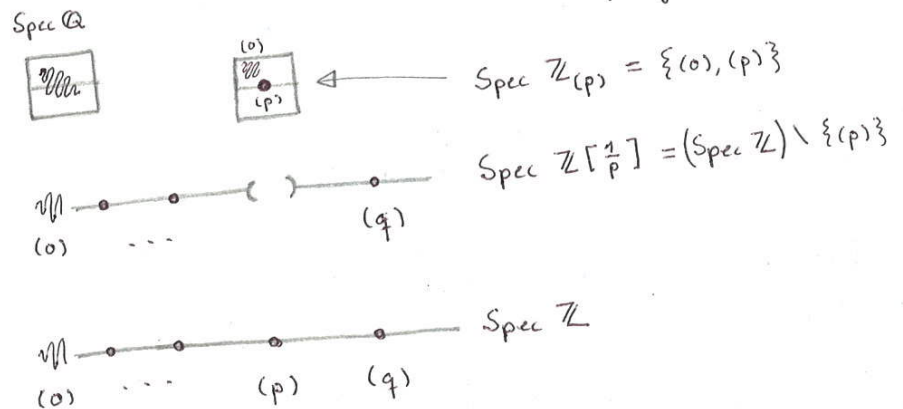 Spec ℚ
(0)
(p)
Spec ℤ(p) = {(0), (p)}
Spec ℤ[1/p] = (Spec ℤ) \ {(p)}
(0) ... (q)
Spec ℤ
(0) ... (p) (q)